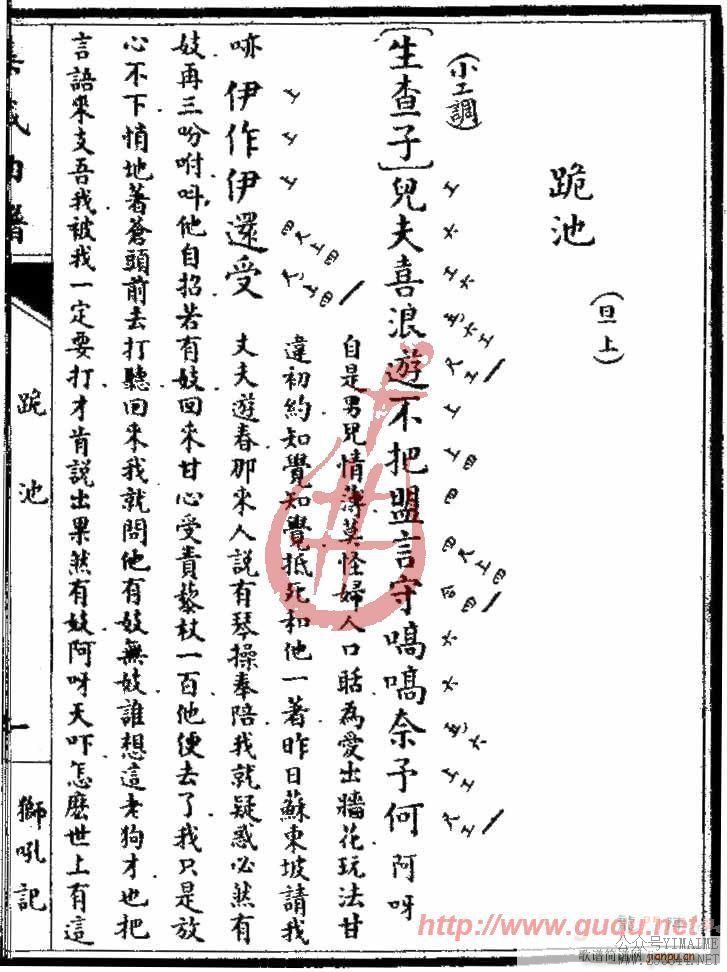 跪池
（旦上）
（小工調）
［生查子］兒夫喜浪遊不把盟言守嗃嗃奈予何阿呀
哧伊作伊還受
自是男兒情薄莫怪婦人口聒為愛出牆花玩法甘
違初約知覺知覺抵死和他一著昨日蘇東坡請我
丈夫遊春那来人説有琴操奉陪我就疑惑必然有
妓再三吩咐呌他自招若有妓回来甘心受責藜杖一百他便去了我只是放
心不下悄地著蒼頭前去打聽回来我就問他有妓無妓誰想這老狗才也把
言語来支吾我被我一定要打才肯説出果然有妓阿呀天吓怎麼世上有這
跪池
一
獅吼記
http://www.guqu.net
公众号YIMAIME
歌谱简谱网 jianpu.cn